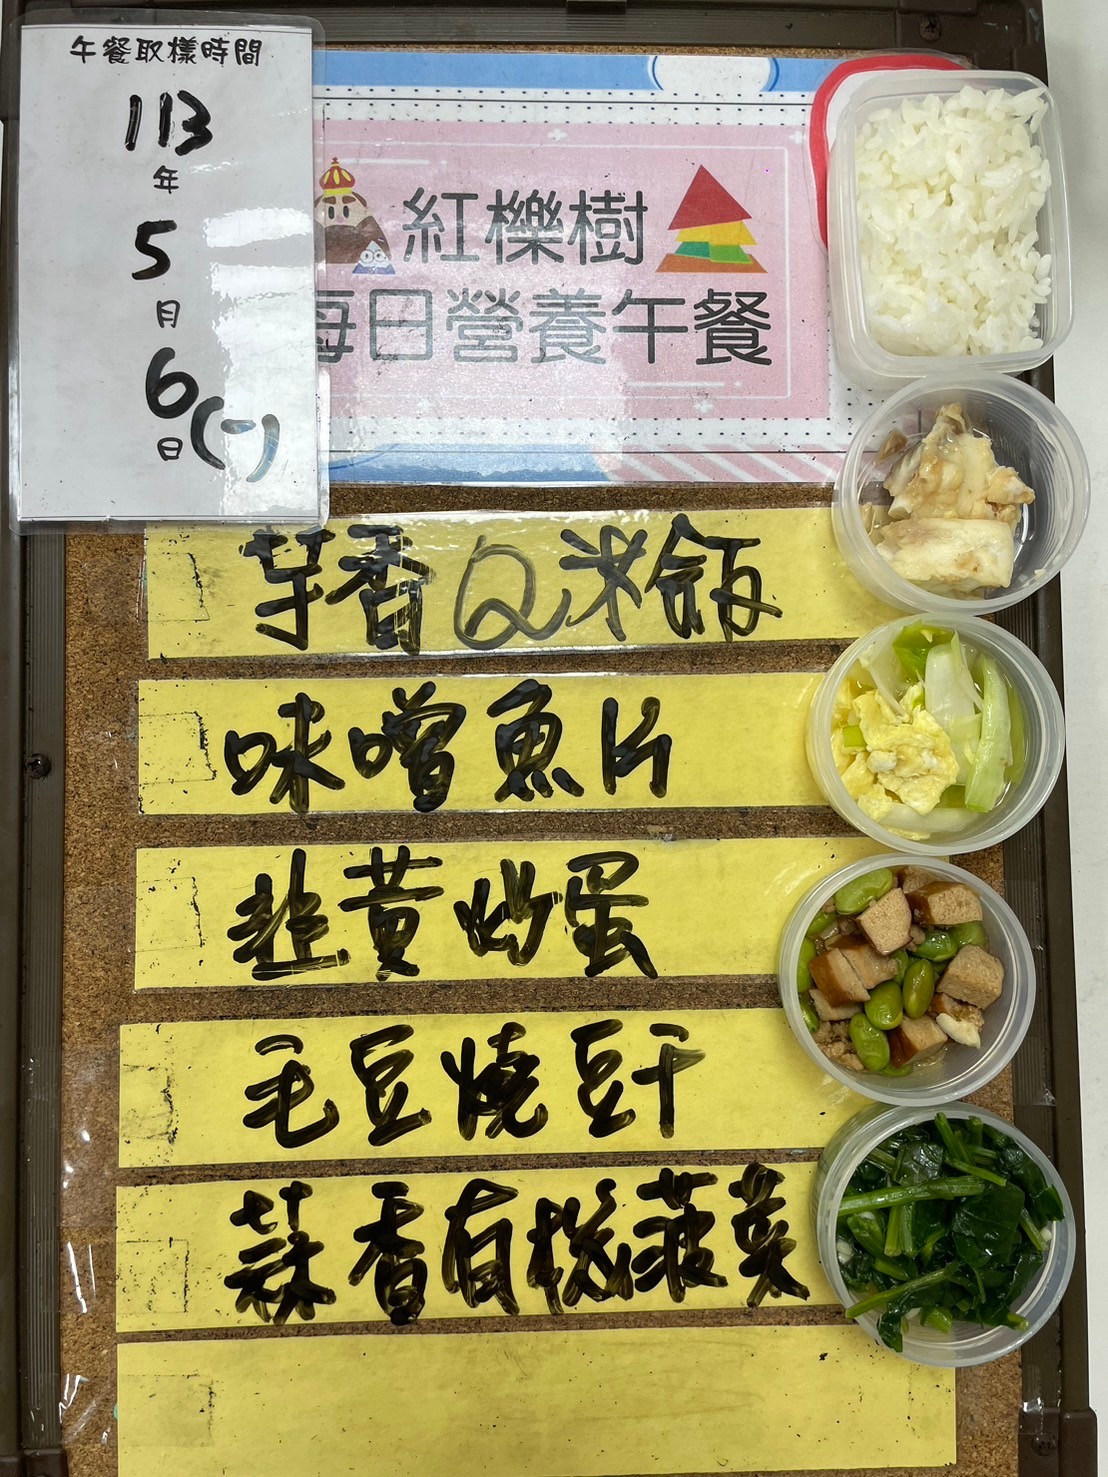 午餐取樣時間
113
年
5
月
6
日(一)
紅櫟樹
每日營養午餐
芋香Q米飯
味噌魚片
韭黃炒蛋
毛豆燒豆干
蒜香有機菠菜